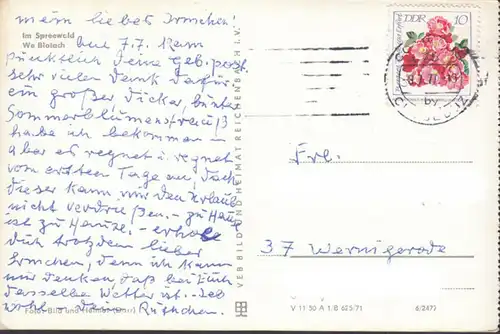 mein liebes Irmchen!
Im Spreewald
We Błotach
Am 7.7. kam
pünktlich deine Geb. post.
sehr vielen Dank dafür
ein großer dicker, bunter
Sommerblumenstrauß
habe ich bekommen
aber es regnet u. regnet
vom ersten Tage an, doch
dieser kann mir den Urlaub
nicht verdrießen. - zu Haus
ist zu Hause. - erhole
dich trotzdem lieber
Irmchen, denn ich kann
mir denken daß bei Euch
dasselbe Wetter ist. - Leb
wohl, dein
Foto: Bild und Heimat
VEB BILD UND HEIMAT REICHENBACH I. V.
DDR 10
Frl.
37 Wernigerode
V 11 50 A 1/B 675/71 6/2472